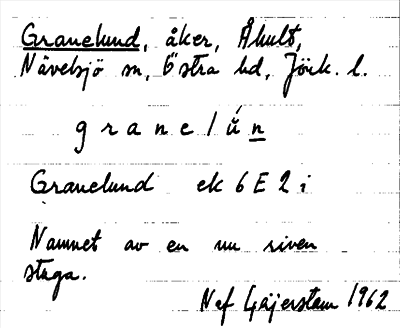 Granelund, åker, Åhult,
Nävelsjö sn, Östra hd, Jönk. l.
granelu̇́n
Granelund ek 6E2i
Namnet av en nu riven
stuga.
Nef Gäjerstam 1962